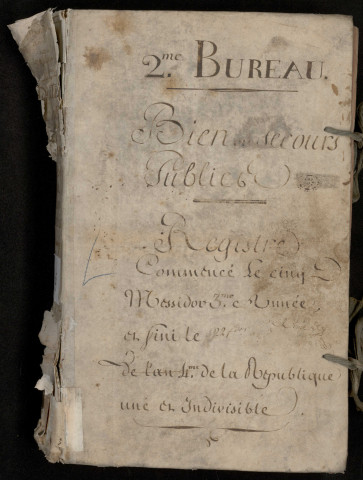 2.me BUREAU.
Bien secours
Publics
Registre
Commencé le cinq
Messidor 3.me Année
et fini le
De l'an 4.me de la République
une et Indivisible.